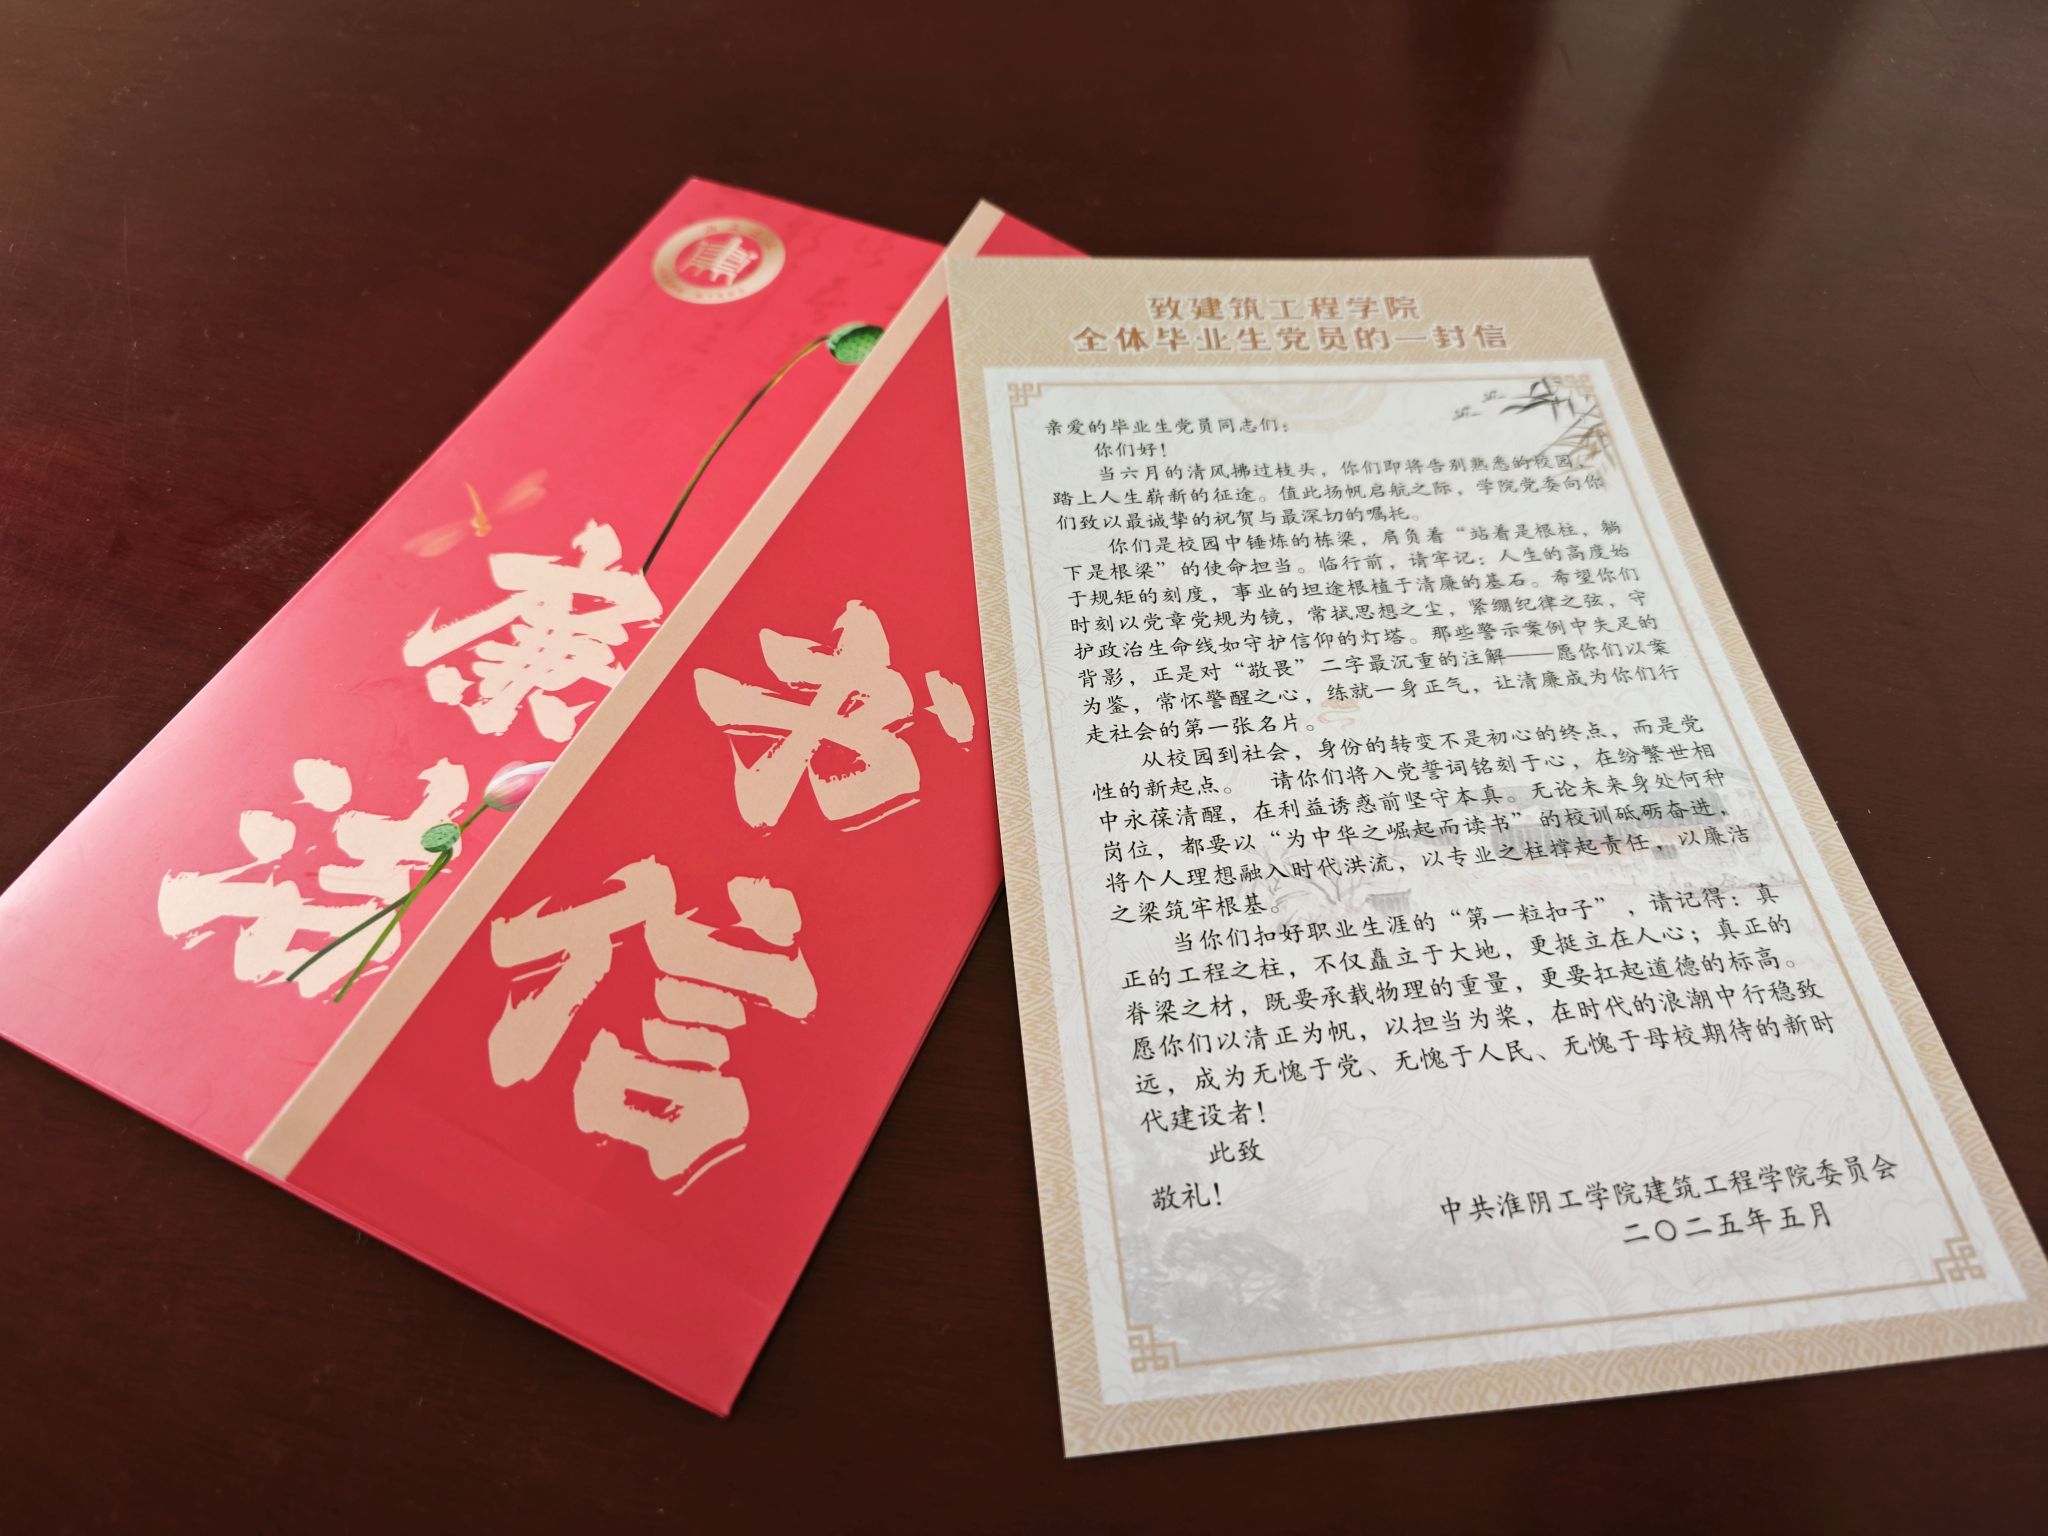 廉
洁
书
信
致建筑工程学院
全体毕业生党员的一封信
亲爱的毕业生党员同志们：
你们好！
当六月的清风拂过枝头，你们即将告别熟悉的校园，
踏上人生崭新的征途。值此扬帆启航之际，学院党委向你
们致以最诚挚的祝贺与最深切的嘱托。
你们是校园中锤炼的栋梁，肩负着“站着是根柱，躺
下是根梁”的使命担当。临行前，请牢记：人生的高度始
于规矩的刻度，事业的坦途根植于清廉的基石。希望你们
时刻以党章党规为镜，常拭思想之尘，紧绷纪律之弦，守
护政治生命线如守护信仰的灯塔。那些警示案例中失足的
背影，正是对“敬畏”二字最沉重的注解——愿你们以案
为鉴，常怀警醒之心，练就一身正气，让清廉成为你们行
走社会的第一张名片。
从校园到社会，身份的转变不是初心的终点，而是党
性的新起点。 请你们将入党誓词铭刻于心，在纷繁世相
中永葆清醒，在利益诱惑前坚守本真。无论未来身处何种
岗位，都要以“为中华之崛起而读书”的校训砥砺奋进，
将个人理想融入时代洪流，以专业之柱撑起责任，以廉洁
之梁筑牢根基。
当你们扣好职业生涯的“第一粒扣子”，请记得：真
正的工程之柱，不仅矗立于大地，更挺立在人心；真正的
脊梁之材，既要承载物理的重量，更要扛起道德的标高。
愿你们以清正为帆，以担当为桨，在时代的浪潮中行稳致
远，成为无愧于党、无愧于人民、无愧于母校期待的新时
代建设者！
此致
敬礼！
中共淮阴工学院建筑工程学院委员会
二〇二五年五月